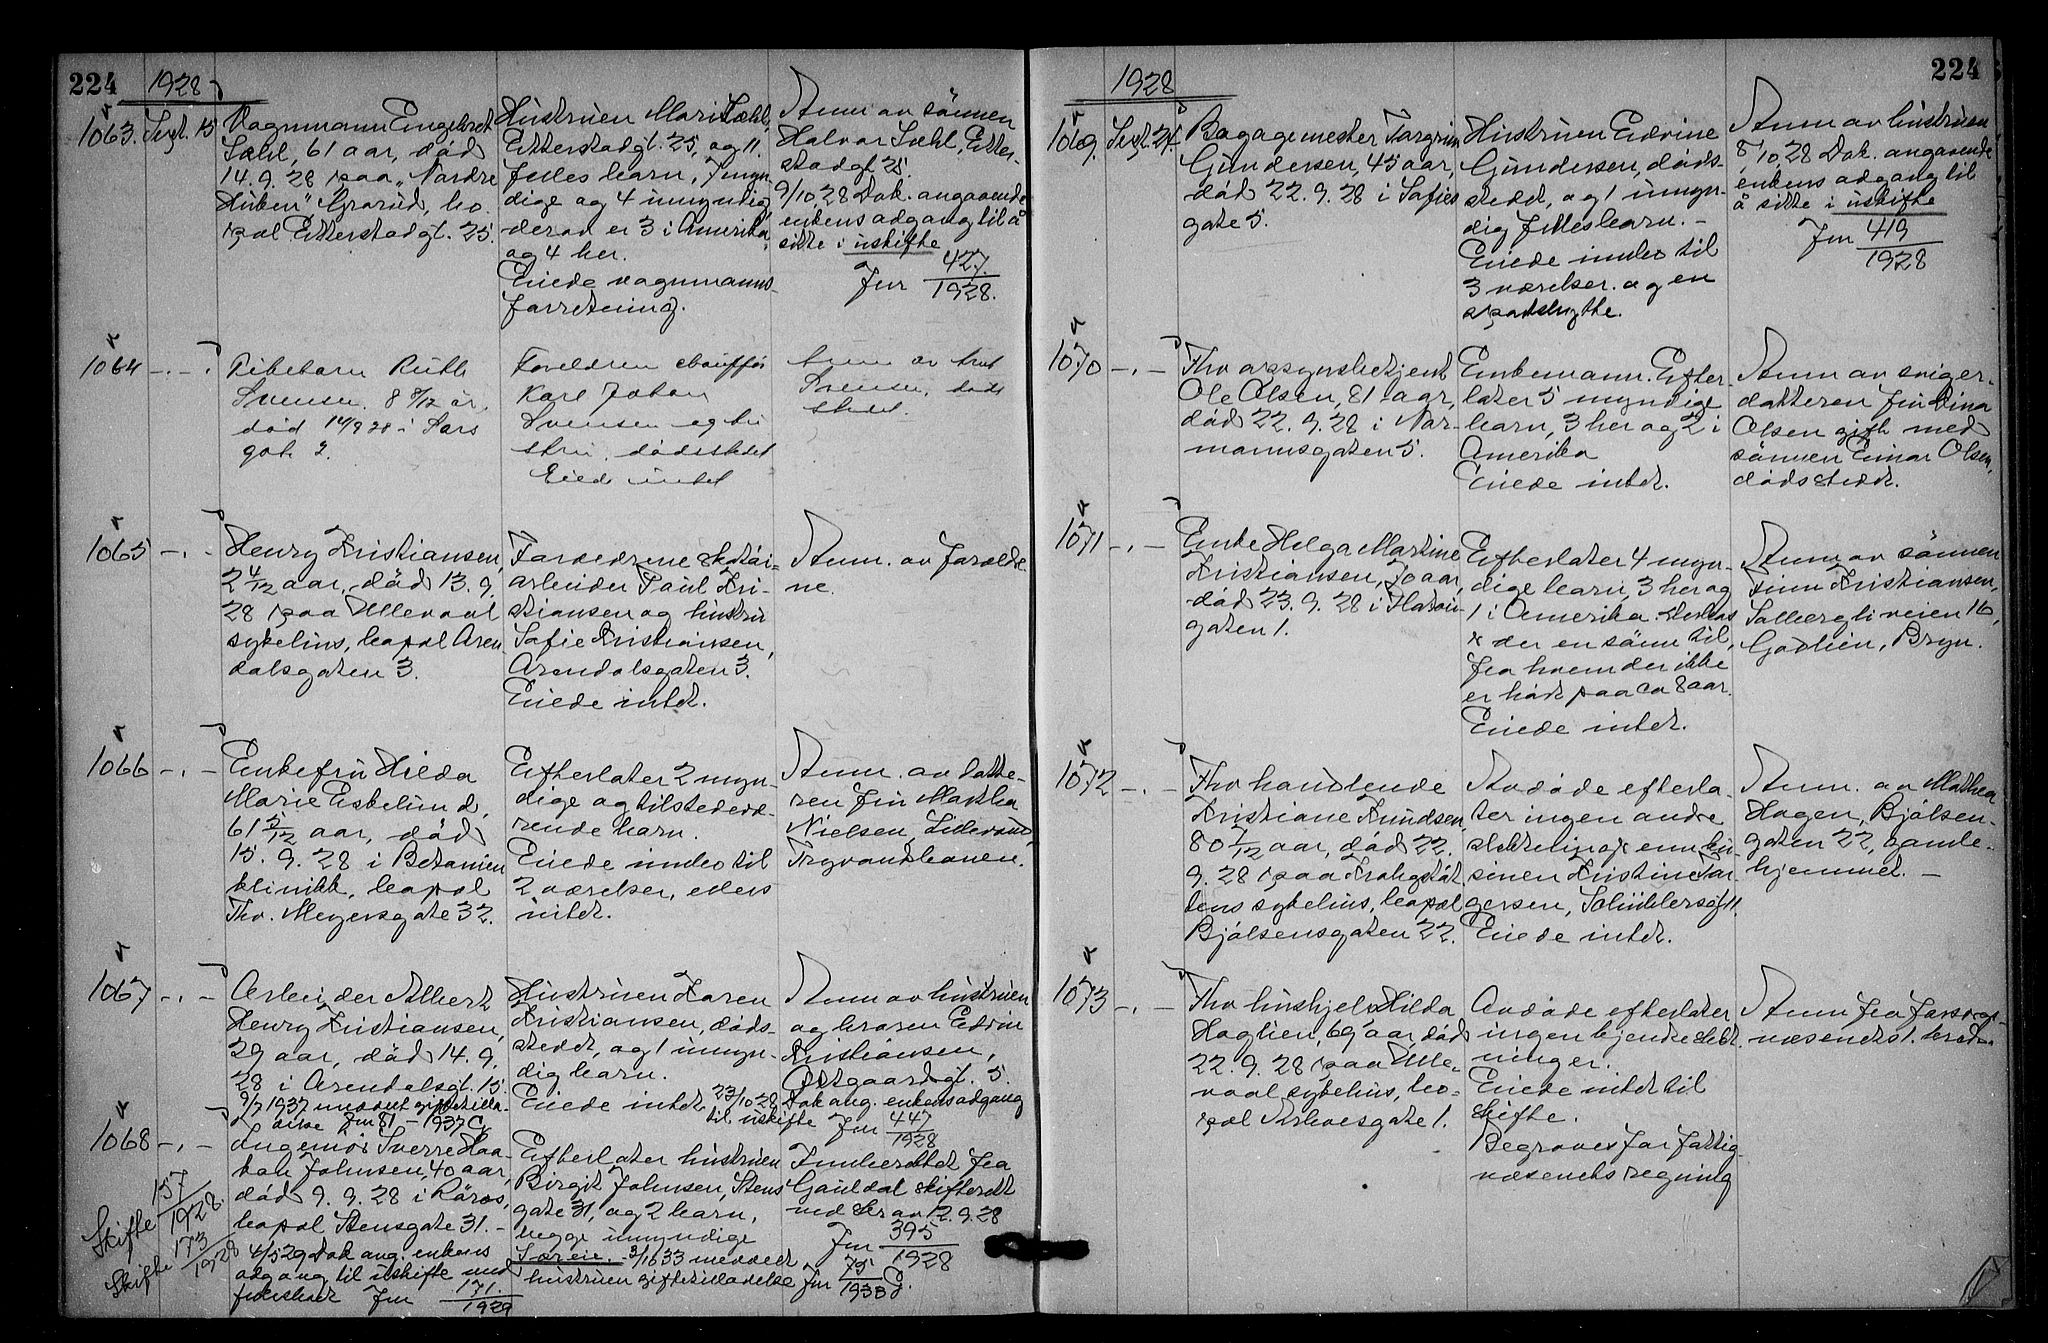 224
1928
1063. Sept. 15
Vognmann Engebret
Sæhl, 61 aar, død
14.9.28 paa "Nordre
Huken" Grorud, bo-
pæl Etterstadgt. 25.
Hustruen Mari Sæhl,
Etterstadgt. 25, og 11
felles barn, 7 myn-
dige og 4 umyndig,
derav er 3 i Amerika,
og 4 her.
Eiede vognmanns-
forretning.
Anm av sönnen
Halvor Sæhl, Etter-
stadgt 25.
9/10,28 Dok. angaaende
enkens adgang til å
sitte i uskifte
Jnr 427/1928.
1064 -.-.
Pikebarn Ruth
Svensen 8 8/12 år,
död 14/9 28 i Sars
gate 2.
Foreldren chauffør
Karl Johan
Svensen og hu
stru, dødsstedet
Eied intet
Anm av fru
Svensen, døds
stedet.
1065 -.-
Henry Kristiansen,
2 4/12 aar, död 13.9.
28 paa Ullevaal
sykehus, bopæl Aren
dalsgaten 3.
Foreldrene skotöi-
arbeider Paul Kri-
stiansen og hustru
Sofie Kristiansen,
Arendalsgaten 3.
Eiede intet.
Anm. av foreldre-
ne.
1066 -.-
Enkefru Hilda
Marie Eskelund,
61 5/12 aar, död
15.9.28 i Betanien
klinikk, bopæl
Thv. Meyersgate 32.
Efterlater 2 myn-
dige og tilstedevæ-
rende barn.
Eiede innbo til
2 værelser, ellers
intet.
Anm. av datte-
ren fru Martha
Nielsen, Lillevann,
Tryvandsbanen.
1067 -.-
Arbeider Albert
Henry Kristiansen,
29 aar, död 14.9.
28 i Arendalsgt. 15.
9/7 1937 meddelt giftetilla-
telse Jnr 81 - 1937
Hustruen Karen
Kristiansen, döds-
stedet, og 1 umyn-
dig barn.
Eiede intet
Anm av hustruen
og broren Edvin
Kristiansen,
Ostgaardsgt. 5.
23/10 28 Dok ang. enkens adgang
til uskifte Jnr 447/1928
1068 -.-
Skifte 157/1928
Skifte 173/1928
Ingeniör Sverre Haa-
kon Johnsen, 40 aar,
död 9.9.28 i Röros,
bopæl Stensgate 31.-
4/5 29 Dok ang. enkens
adgang til uskifte med
felesboet Jnr 171./1929
Efterlater hustruen
Birgit Johnsen, Stens
gate 31, og 2 barn,
begge umyndige
Særeie. - 3/1633 meddelt
hustruen giftetilladelse Jnr 75/1933
Innberettet fra
Gauldal skifterett
ved br av 12.9.28
Jnr 395/1928
1928
224
1069. Sept. 24.
Bagagemester Torgrim
Gundersen, 45 aar,
död 22.9.28 i Sofies
gate 5.
Hustruen Edvine
Gundersen, döds-
stedet, og 1 umyn-
dig felles barn.-
Eiede innbo til
3 værelser. og en
sportshytte.
Anm av hustruen
8/10,28 Dok. angaaende
enkens adgang til
å sitte i uskifte
Jnr 419/1928
1070 -.-
Fhv opsynsbetjent
Ole Olsen, 81 aar,
död 22.9.28 i Nor-
mannsgaten 5.
Enkemann. Efter-
later 5 myndige
barn, 3 her og 2 i
Amerika
Eiede intet.
Anm av sviger-
datteren fru Dina
Olsen gift med
sönnen Einar Olsen,
dödsstedet.
1071 -.-
Enke Helga Martine
Kristiansen, 70 aar,
död 23.9.28 i
gaten 1.
Efterlater 4 myn-
dige barn, 3 her og
1 i Amerika.
der en sönn til,
fra hvem der ikke
er hört paa ca 8 aar.
Eiede intet.
Anm av sönnen
Finn Kristiansen,
Solbergliveien 16,
Godlien, Bryn.
1072 -.-
Fhv handlende
Kristiane Knudsen,
80 7/12 aar, död 22.
9.28 paa Krohgstöt
tens sykehus, bopæl
Bjölsensgaten 22.
Avdöde efterla-
ter ingen andre
slektninger enn ku-
sinen Kristine Tor
gersen, Schüblersgt 11.
Eiede intet.
Anm. av Mathea
Hagen, Bjölsen-
gaten 22, gamle-
hjemmet. -
1073 -.-
Fhv hushjelp Hilda
Haglien, 69 aar, död
22.9.28 paa Ulle-
vaal sykehus, bo-
pæl Arboesgate 1.
Avdöde efterlater
ingen kjendte slekt
ninger.
Eiede intet til
skifte.
Begraves for fattig-
væsenets regning
Anm fra forsorgs-
væsenets 1. kreds